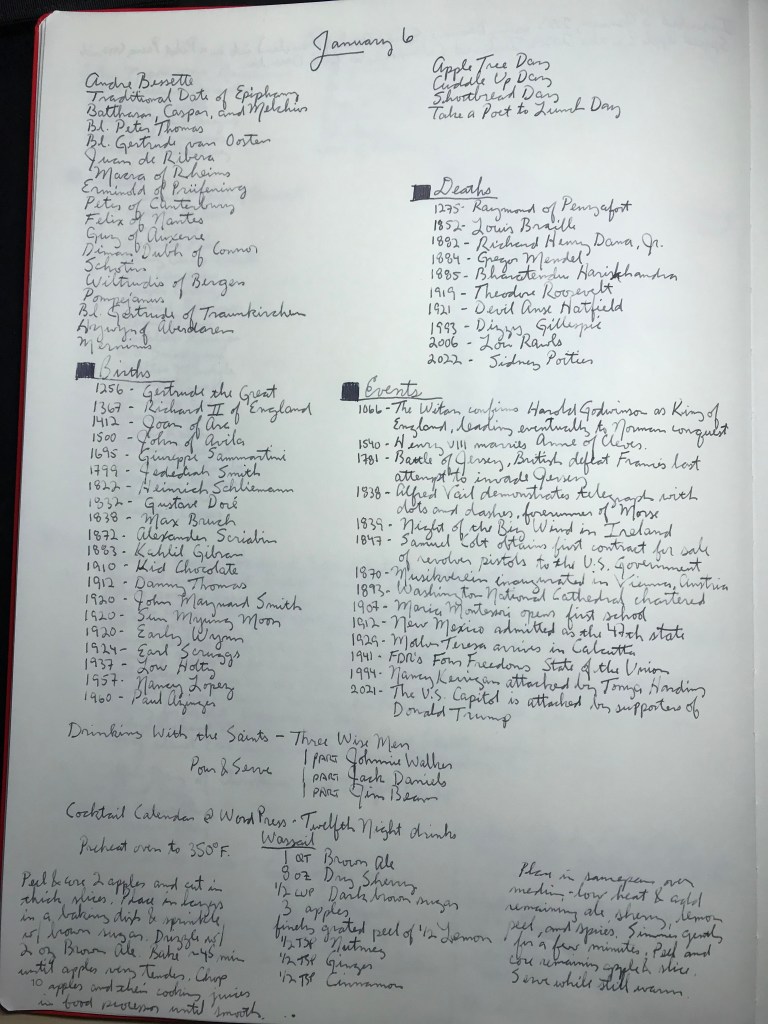 January 6
Andre Bessette
Traditional Date of Epiphany
Balthasar, Caspar, and Melchior
Bl. Peter Thomas
Bl. Gertrude van Oosten
Juan de Ribera
Macra of Rheims
Erminold of Prüfening
Peter of Canterbury
Felix of Nantes
Guy of Auxerre
Diman Dubh of Connor
Schotin
Wiltrudis of Bergen
Pompejanus
Bl. Gertrude of Traunkirchen
Hywyn of Aberdaron
Merinus
Apple Tree Day
Cuddle Up Day
Shortbread Day
Take a Poet to Lunch Day
Deaths
1275- Raymond of Pennyafort
1852- Louis Braille
1882- Richard Henry Dana, Jr.
1884- Gregor Mendel
1885- Bharatendu Harishchandra
1919- Theodore Roosevelt
1921- Devil Anse Hatfield
1993- Dizzy Gillespie
2006- Lou Rawls
2022- Sidney Poitier
Births
1256- Gertrude the Great
1367- Richard II of England
1412- Joan of Arc
1500- John of Avila
1695- Giuseppe Sammartini
1799- Jedediah Smith
1822- Heinrich Schliemann
1832- Gustave Doré
1838- Max Bruch
1872- Alexander Scriabin
1883- Kahlil Gibran
1910- Kid Chocolate
1912- Danny Thomas
1920- John Maynard Smith
1920- Sun Myung Moon
1920- Early Wynn
1924- Earl Scruggs
1937- Lou Holtz
1957- Nancy Lopez
1960- Paul Azinger
Events
1066- The Witan confirms Harold Godwinson as King of
England, leading eventually to Norman conquest
1540- Henry VIII marries Anne of Cleves.
1781- Battle of Jersey, British defeat Frances last
attempt to invade Jersey
1838- Alfred Vail demonstrates telegraph with
dots and dashes, forerunner of Morse
1839- Night of the Big Wind in Ireland
1847- Samuel Colt obtains first contract for sale
of revolver pistols to the U.S. Government
1870- Musikverein inaugurated in Vienna, Austria
1893- Washington National Cathedral chartered
1907- Maria Montessori opens first school
1912- New Mexico admitted as the 47th state
1929- Mother Teresa arrives in Calcutta
1941- FDR's Four Freedoms State of the Union
1994- Nancy Kerrigan attacked by Tonya Harding
2021- The U.S. Capitol is attacked by supporters of
Donald Trump
Drinking With the Saints - Three Wise Men
Pour & Serve
1 PART Johnnie Walker
1 PART Jack Daniels
1 PART Jim Beam
Cocktail Calendar @ WordPress - Twelfth Night drinks
Preheat oven to 350°F.
Wassail
1 QT Brown Ale
8 OZ Dry Sherry
1/2 CUP Dark brown sugar
3 apples
finely grated peel of 1/2 Lemon
1/2 TSP Nutmeg
1/2 TSP Ginger
1/2 TSP Cinnamon
Peel & core 2 apples and cut in
thick slices. Place in layers
in a baking dish & sprinkle
w/ brown sugar. Drizzle w/
2 oz Brown Ale. Bake ~45 min
until apples very tender. Chop
apples and their cooking juices
in food processor until smooth. ...
Place in saucepan over
medium-low heat & add
remaining ale, sherry, lemon
peel, and spices. Simmer gently
for a few minutes. Peel and
core remaining apple & slice.
Serve while still warm.
10